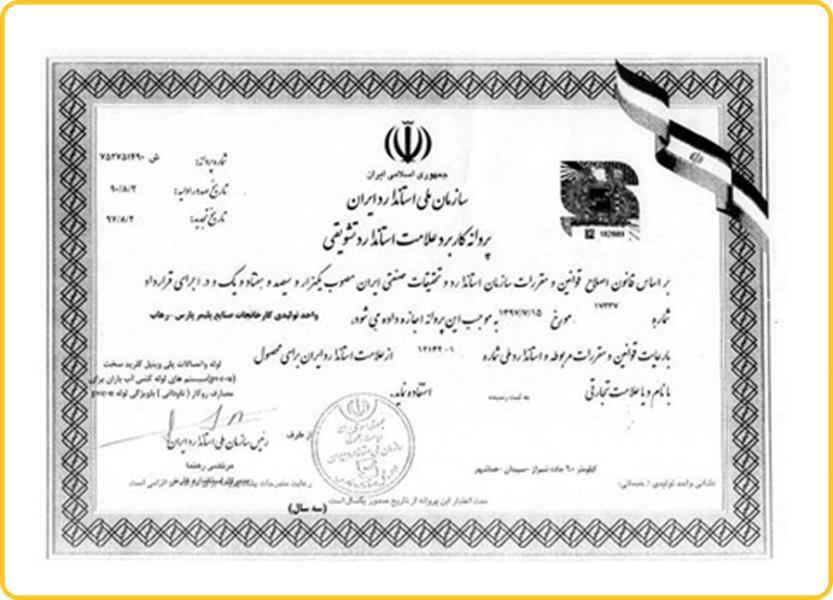 جمهوری اسلامی ایران
سازمان ملی استاندارد ایران
پروانه کاربرد علامت استاندارد تشویقی
شماره پروانه: ش ۷۵۲۷۵۱۴۹۰
تاریخ صدور اولیه: ۹۰/۸/۲
تاریخ تجدید: ۹۷/۸/۲
بر اساس قانون اصلاح قوانین و مقررات سازمان استاندارد و تحقیقات صنعتی ایران مصوب یکهزار و سیصد و هفتاد و یک و در اجرای قرارداد
شماره ۱۷۲۳۷ مورخ ۱۳۹۷/۷/۱۵ به موجب این پروانه اجازه داده می شود، واحد تولیدی کارخانجات صنایع پلیمر پارس -رهاب
با رعایت قوانین و مقررات مربوطه و استاندارد ملی شماره ۱۲۱۴۲-۱ از علامت استاندارد ایران برای محصول
لوله واتصالات پلی وینیل کلرید سخت
(pvc-u)سیستم های لوله کشی آب باران برای
مصارف روکار ( ناودانی ) باویژگی لوله pvc-u
با نام و یا علامت تجارتی به ثبت رسیده استفاده نماید.
از طرف
رئیس سازمان ملی استاندارد ایران
مرتضی رهنما
نشانی واحد تولیدی / خدماتی: کیلومتر ۶۰ جاده شیراز -سپیدان -همانشهر
مدت اعتبار این پروانه از تاریخ صدور یکسال است
(سه سال)